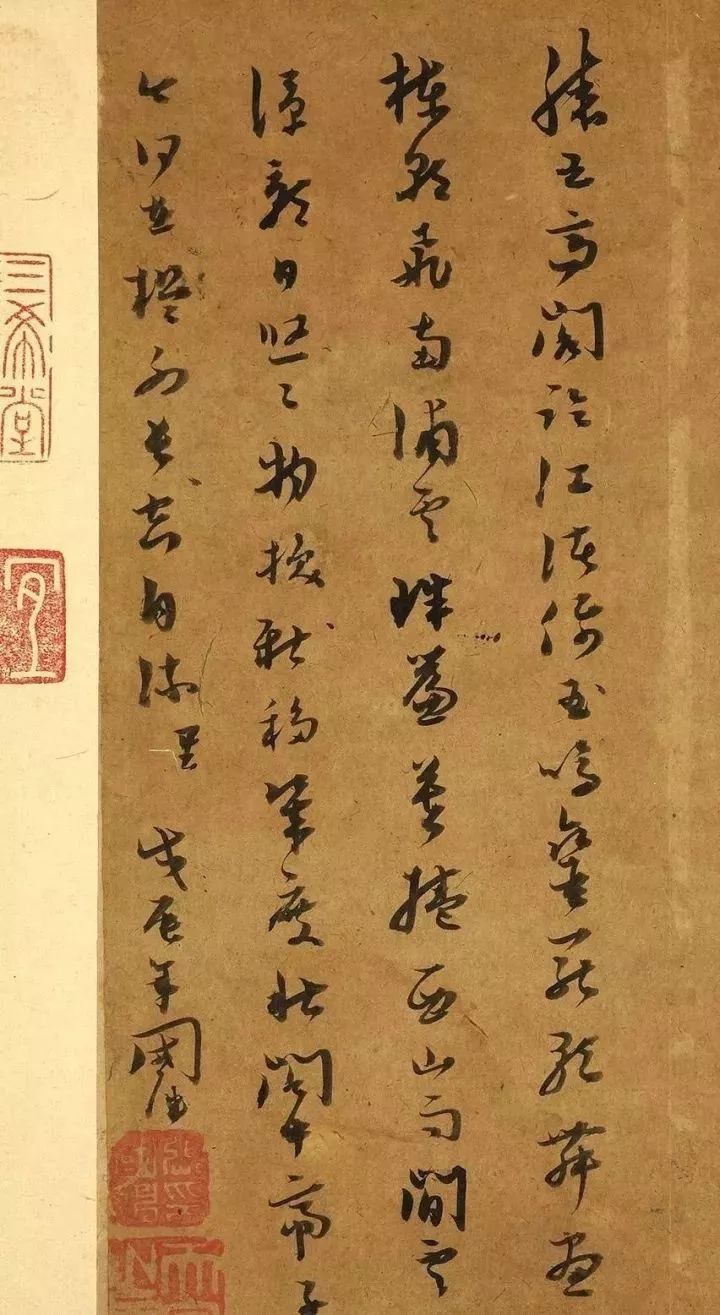 滕王高閣臨江渚佩玉鳴鑾罷歌舞畫
棟朝飛南浦雲珠簾暮捲西山雨閒雲
潭影日悠々物換移幾度秋閣中帝子
今何在檻外長自流 戊辰年
三希堂